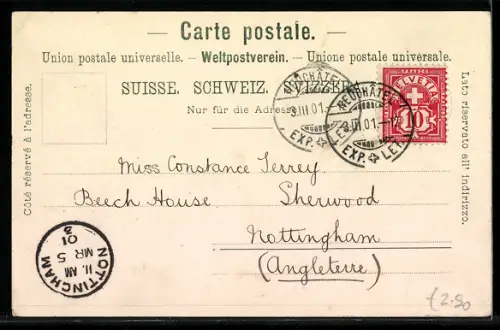 Carte postale.
Union postale universelle. – Weltpostverein. – Unione postale universale.
SUISSE. SCHWEIZ. SVIZZERA.
Nur für die Adresse
Côté réservé à l'adresse.
Lato riservato all' indirizzo.
NEUCHÂTEL
3.III.01.
EXP. LET.
NEUCHÂTEL
3.III.01.–
EXP. LET.
HELVETIA
10
Miss Constance Terrey.
Beech House. Sherwood
Nottingham
(Angleterre)
NOTTINGHAM
11. AM
MR 5
01
2.50